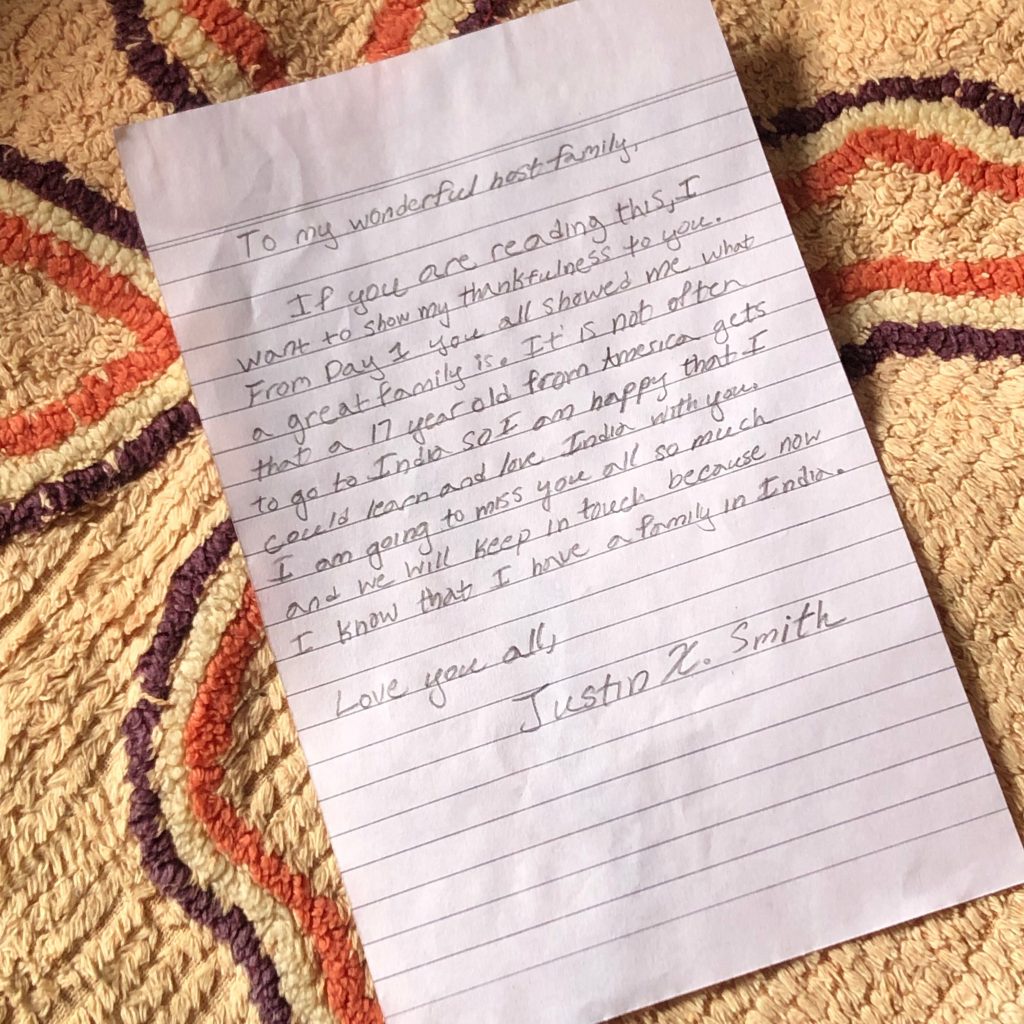 To my wonderful host family,
If you are reading this, I
want to show my thankfulness to you.
From Day 1 you all showed me what
a great family is. It is not often
that a 17 year old from America gets
to go to India so I am happy that I
could learn and love India with you.
I am going to miss you all so much
and we will keep in touch because now
I know that I have a family in India.
Love you all,
Justin X. Smith